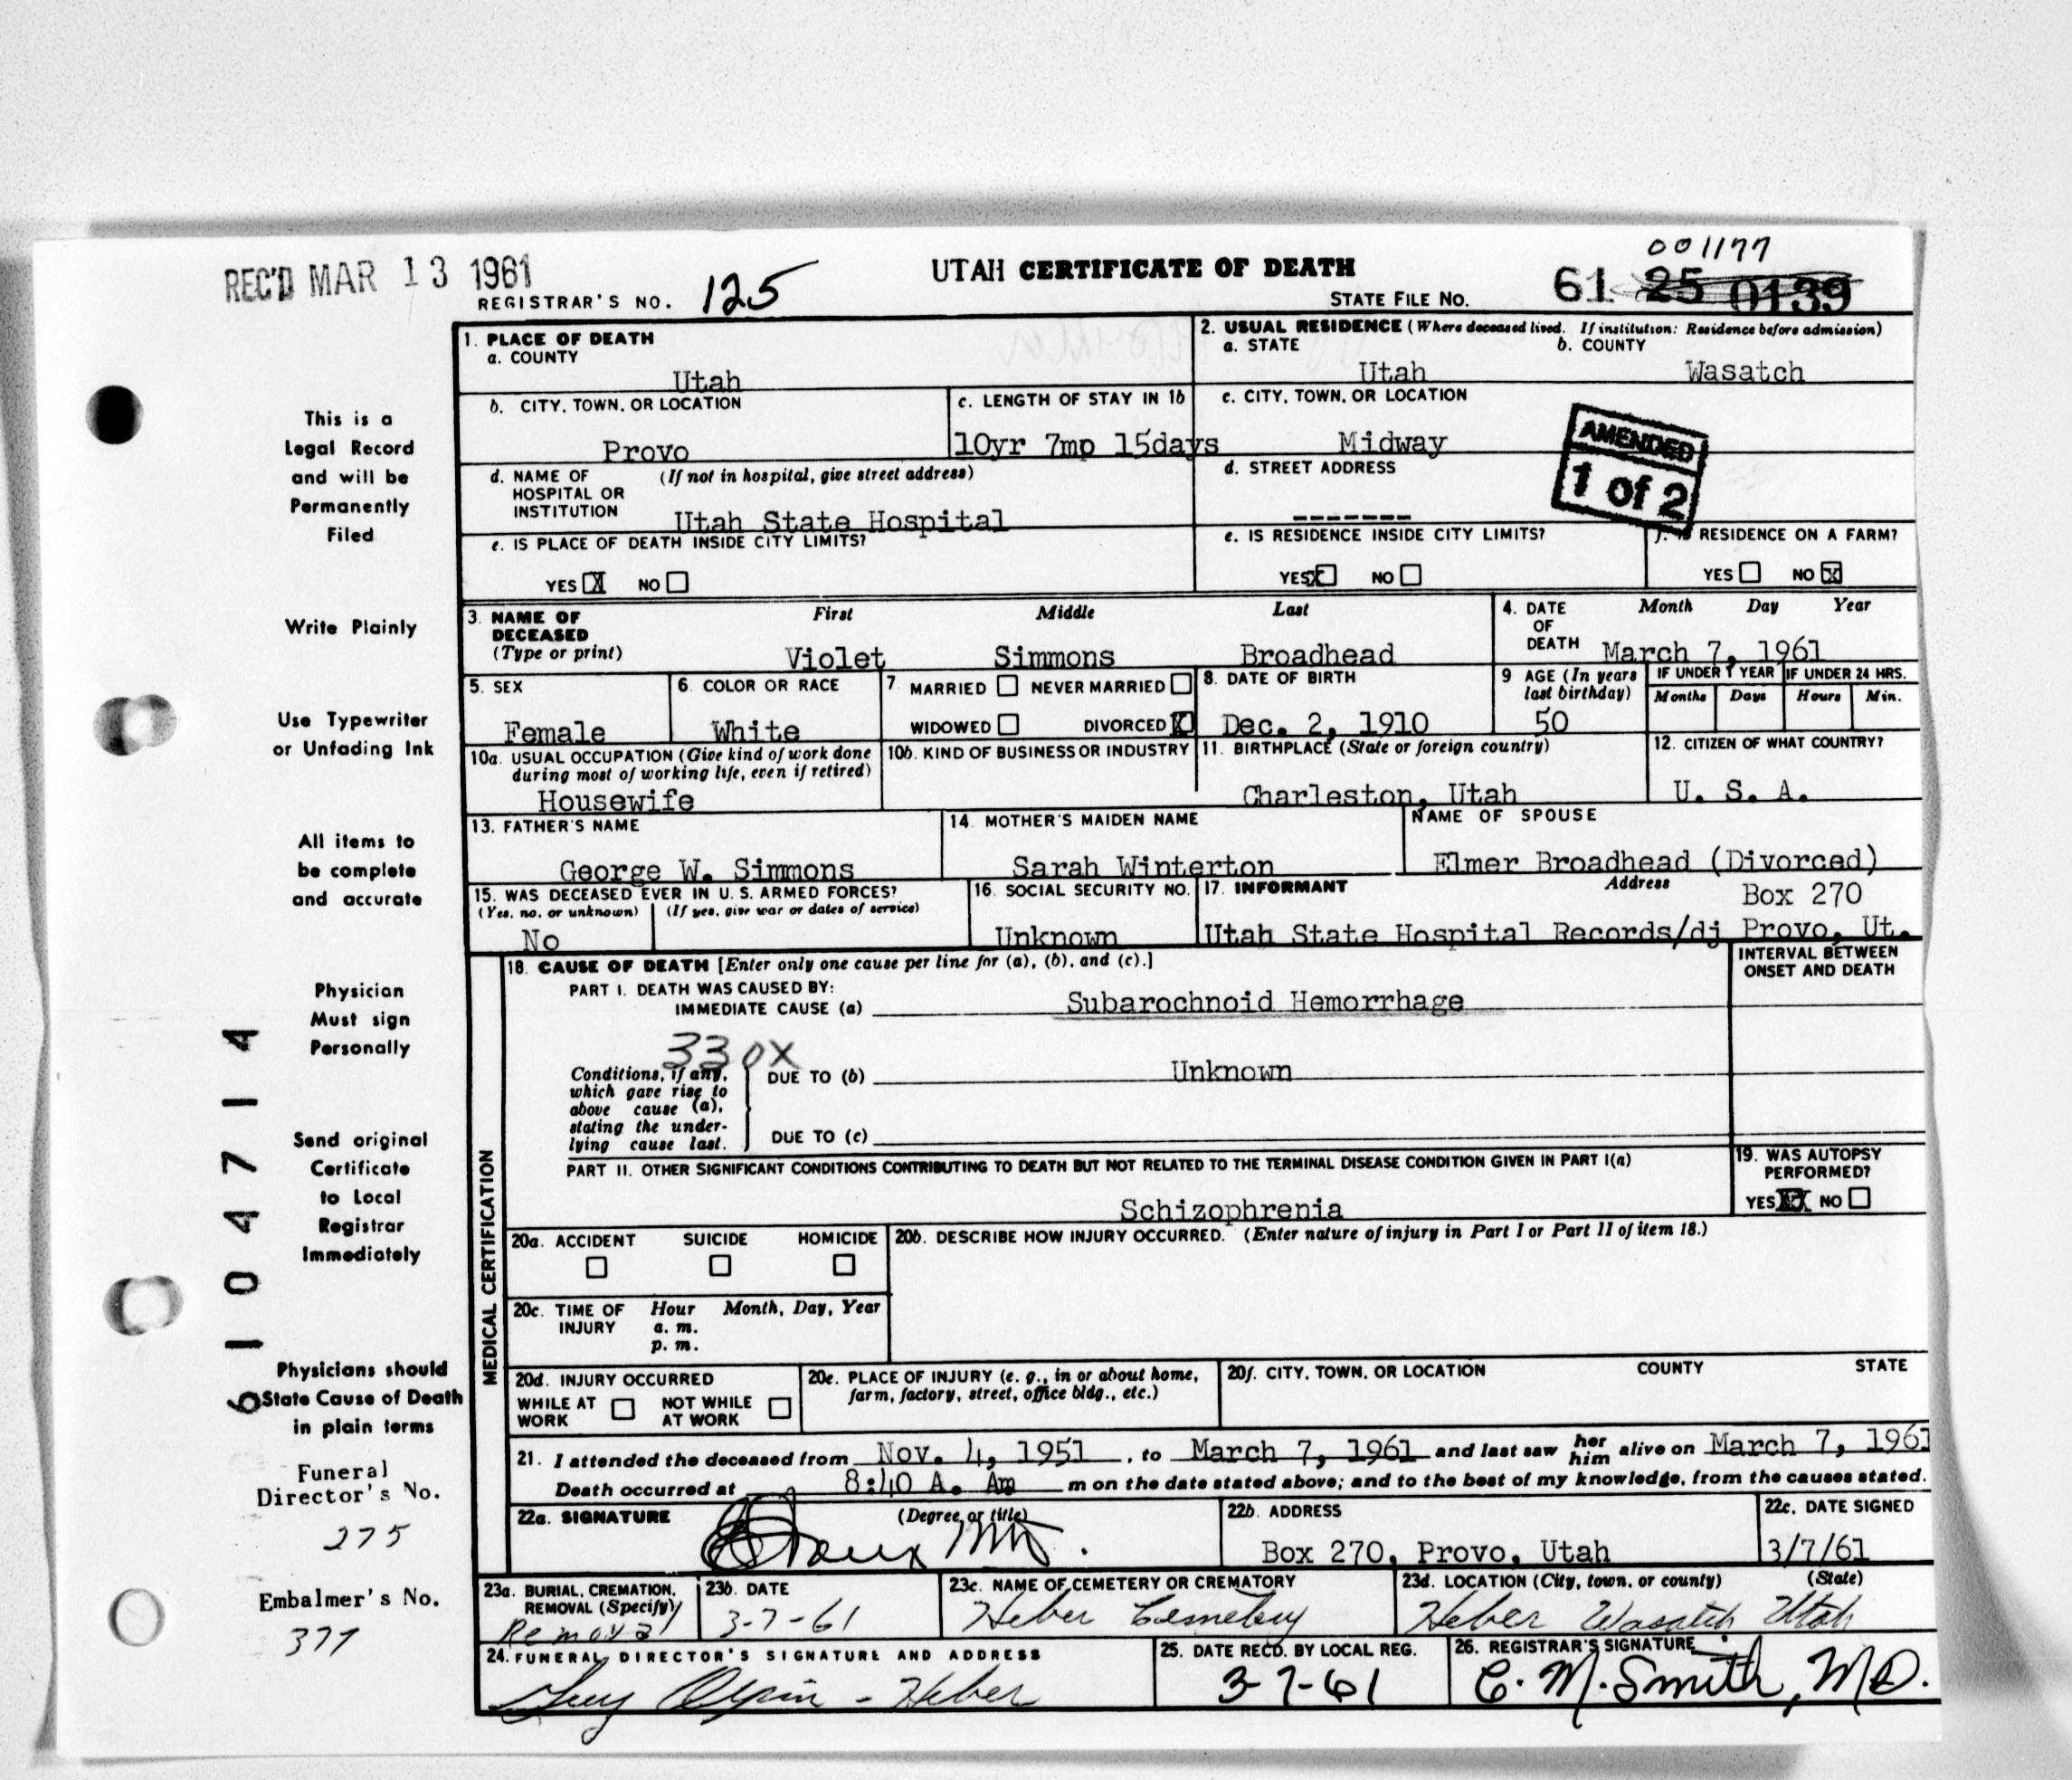 REC'D MAR 13 1961
REGISTRAR'S NO. 125
UTAH CERTIFICATE OF DEATH
001177
STATE FILE No. 61 25 0139
This is a
Legal Record
and will be
Permanently
Filed
Write Plainly
Use Typewriter
or Unfading Ink
All items to
be complete
and accurate
Physician
Must sign
Personally
Send original
Certificate
to Local
Registrar
Immediately
Physicians should
State Cause of Death
in plain terms
Funeral
Director's No.
275
Embalmer's No.
377
6104714
1. PLACE OF DEATH
a. COUNTY
Utah
2. USUAL RESIDENCE (Where deceased lived. If institution: Residence before admission)
a. STATE b. COUNTY
Utah Wasatch
b. CITY, TOWN, OR LOCATION
Provo
c. LENGTH OF STAY IN 1b
10yr 7mp 15days
c. CITY, TOWN, OR LOCATION
Midway
AMENDED
1 of 2
d. NAME OF (If not in hospital, give street address)
HOSPITAL OR
INSTITUTION Utah State Hospital
d. STREET ADDRESS
-------
e. IS PLACE OF DEATH INSIDE CITY LIMITS?
YES X NO
e. IS RESIDENCE INSIDE CITY LIMITS?
YES X NO
RESIDENCE ON A FARM?
YES NO X
3. NAME OF First Middle Last
DECEASED
(Type or print) Violet Simmons Broadhead
4. DATE Month Day Year
OF
DEATH March 7, 1961
5. SEX
Female
6. COLOR OR RACE
White
7. MARRIED NEVER MARRIED
WIDOWED DIVORCED X
8. DATE OF BIRTH
Dec. 2, 1910
9 AGE (In years
last birthday)
50
IF UNDER 1 YEAR IF UNDER 24 HRS.
Months Days Hours Min.
10a. USUAL OCCUPATION (Give kind of work done
during most of working life, even if retired)
Housewife
10b. KIND OF BUSINESS OR INDUSTRY
11. BIRTHPLACE (State or foreign country)
Charleston, Utah
12. CITIZEN OF WHAT COUNTRY?
U. S. A.
13. FATHER'S NAME
George W. Simmons
14. MOTHER'S MAIDEN NAME
Sarah Winterton
NAME OF SPOUSE
Elmer Broadhead (Divorced)
15. WAS DECEASED EVER IN U. S. ARMED FORCES?
(Yes, no, or unknown) (If yes, give war or dates of service)
No
16. SOCIAL SECURITY NO.
Unknown
17. INFORMANT Address Box 270
Utah State Hospital Records/dj Provo, Ut.
MEDICAL CERTIFICATION
18. CAUSE OF DEATH [Enter only one cause per line for (a), (b), and (c).]
INTERVAL BETWEEN
ONSET AND DEATH
PART I. DEATH WAS CAUSED BY:
IMMEDIATE CAUSE (a) Subarochnoid Hemorrhage
330X
Conditions, if any,
which gave rise to
above cause (a),
stating the under-
lying cause last.
DUE TO (b) Unknown
DUE TO (c)
PART II. OTHER SIGNIFICANT CONDITIONS CONTRIBUTING TO DEATH BUT NOT RELATED TO THE TERMINAL DISEASE CONDITION GIVEN IN PART I(a)
Schizophrenia
19. WAS AUTOPSY
PERFORMED?
YES XX NO
20a. ACCIDENT SUICIDE HOMICIDE
20b. DESCRIBE HOW INJURY OCCURRED. (Enter nature of injury in Part I or Part II of item 18.)
20c. TIME OF Hour Month, Day, Year
INJURY a. m.
p. m.
20d. INJURY OCCURRED
WHILE AT NOT WHILE
WORK AT WORK
20e. PLACE OF INJURY (e. g., in or about home,
farm, factory, street, office bldg., etc.)
20f. CITY, TOWN, OR LOCATION COUNTY STATE
21. I attended the deceased from Nov. 4, 1951, to March 7, 1961 and last saw her him alive on March 7, 1961
Death occurred at 8:40 A. Am m on the date stated above; and to the best of my knowledge, from the causes stated.
22a. SIGNATURE (Degree or title)
MD.
22b. ADDRESS
Box 270, Provo, Utah
22c. DATE SIGNED
3/7/61
23a. BURIAL, CREMATION,
REMOVAL (Specify)
Removal
23b. DATE
3-7-61
23c. NAME OF CEMETERY OR CREMATORY
Heber Cemetery
23d. LOCATION (City, town, or county) (State)
Heber Wasatch Utah
24. FUNERAL DIRECTOR'S SIGNATURE AND ADDRESS
- Heber
25. DATE RECD. BY LOCAL REG.
3-7-61
26. REGISTRAR'S SIGNATURE
C. M. Smith, MD.